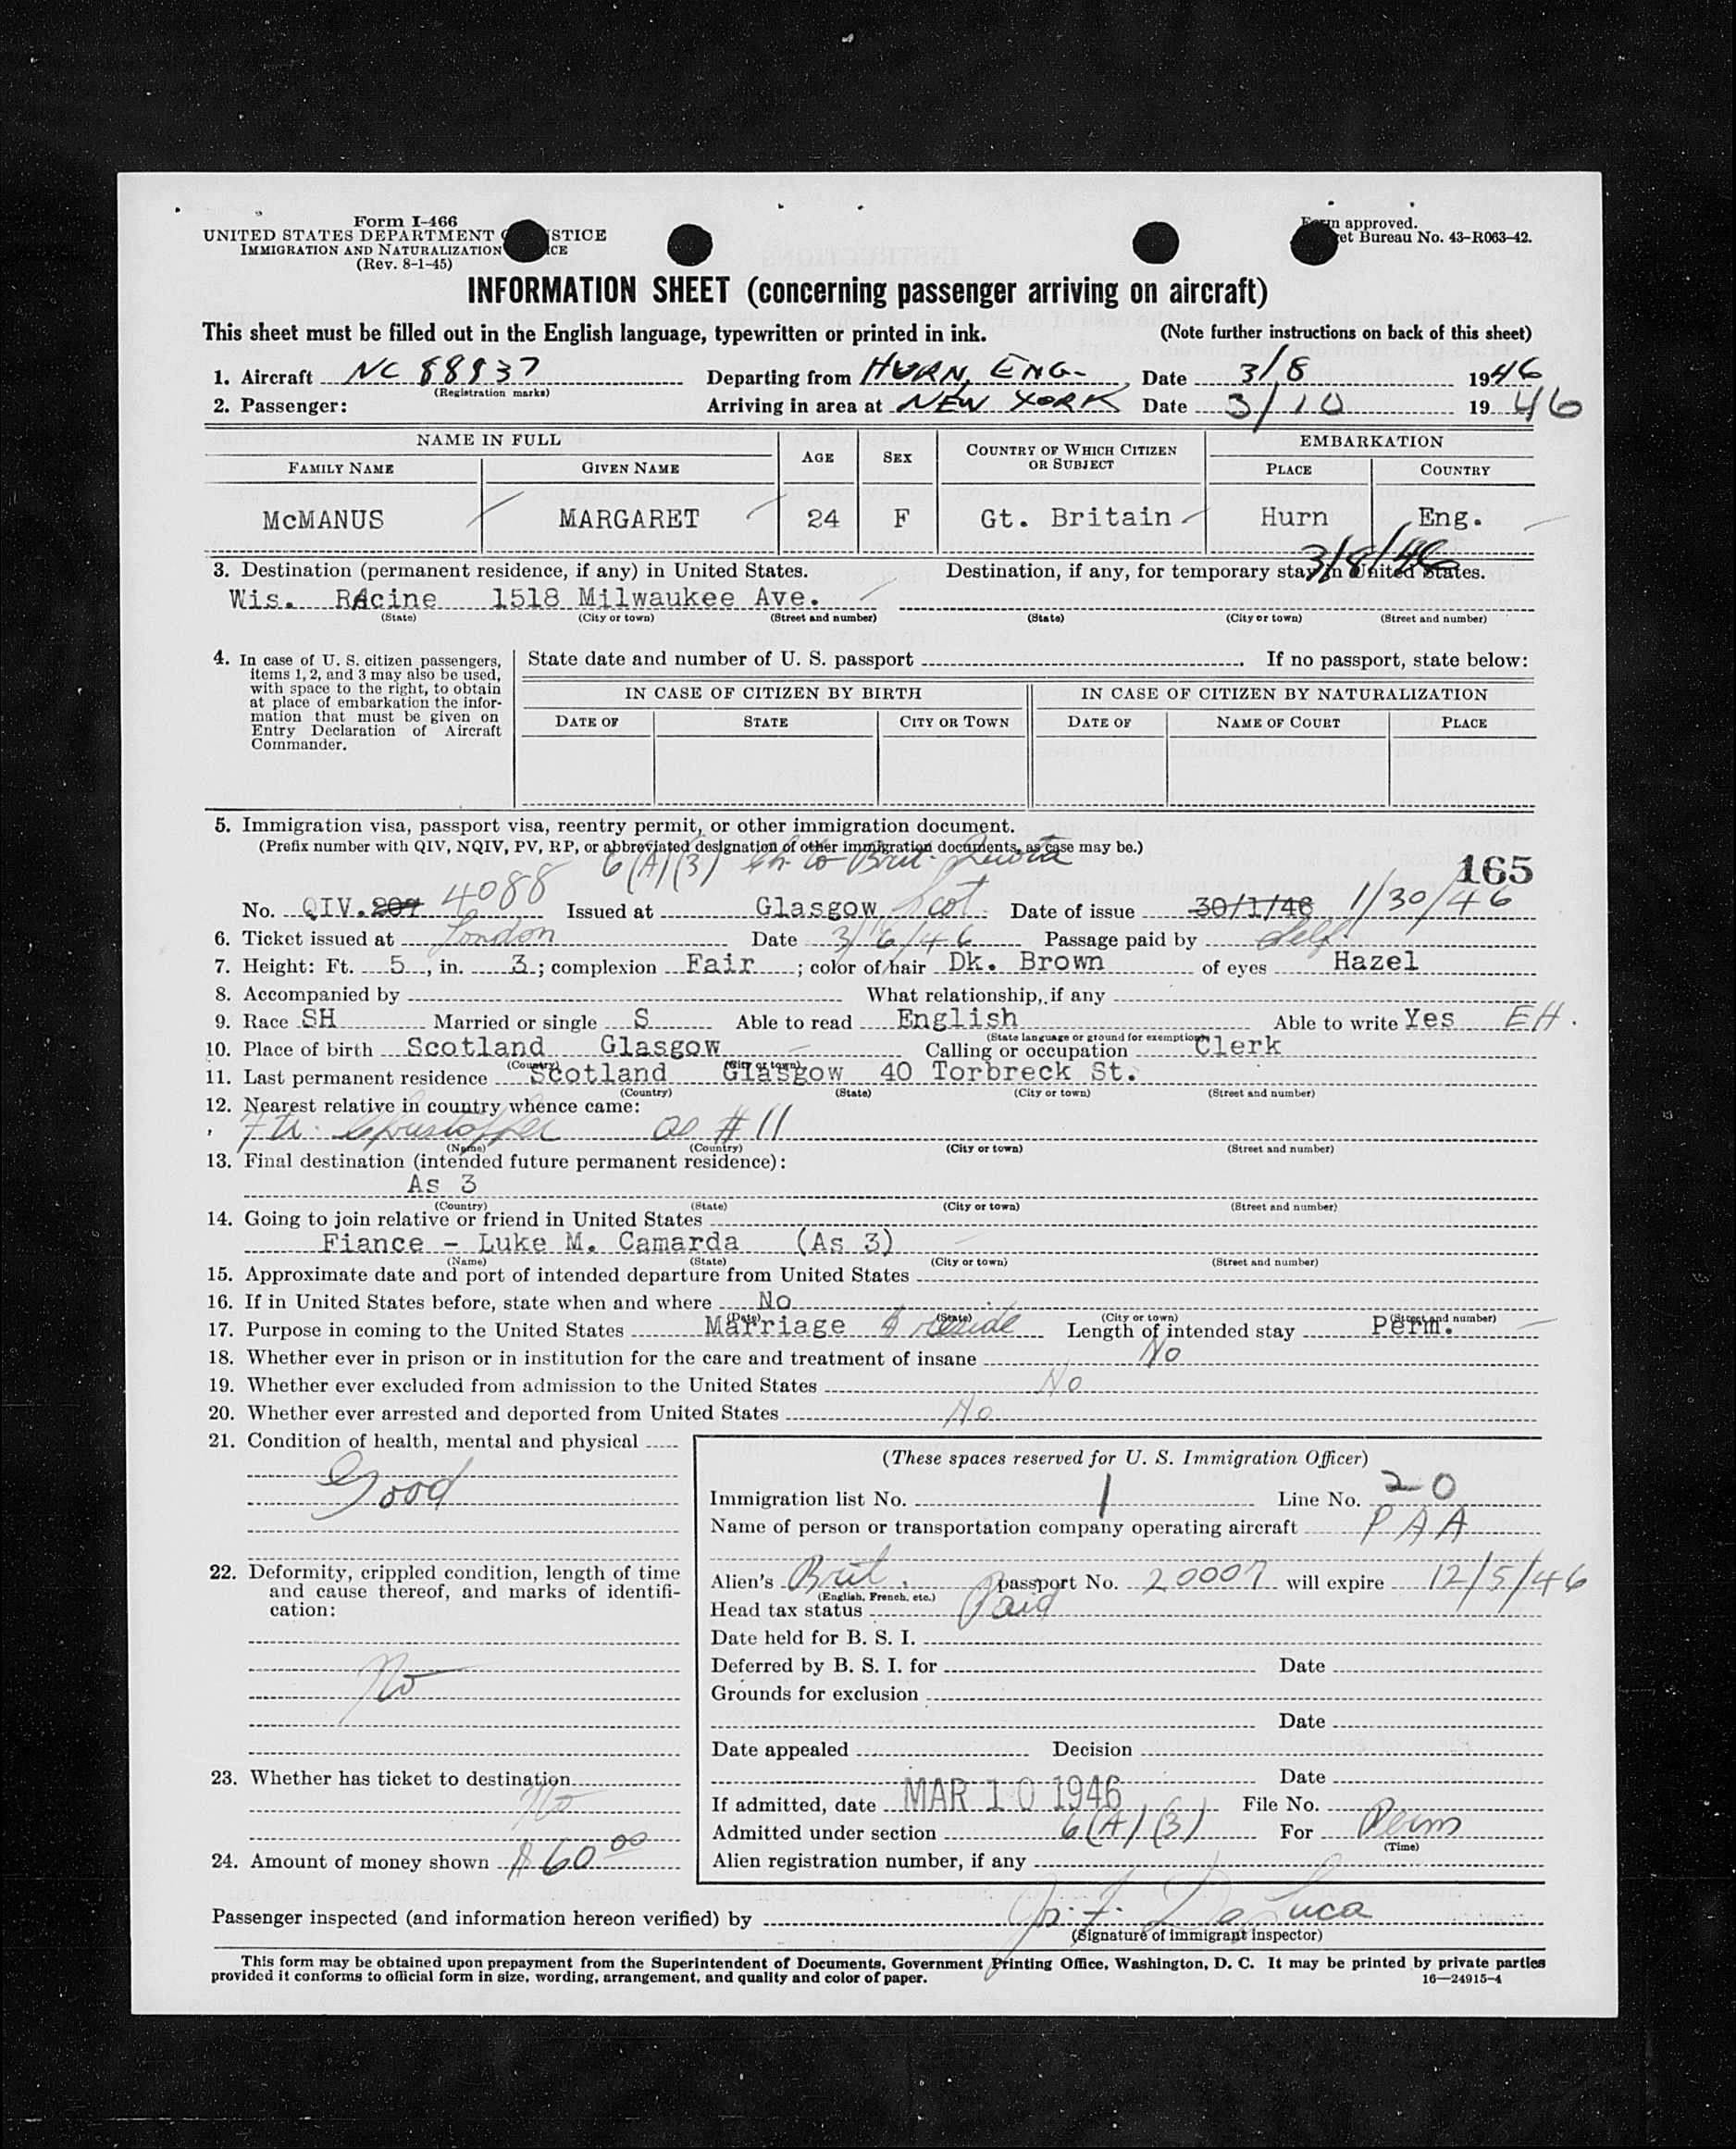 Form I-466
UNITED STATES DEPARTMENT STICE
IMMIGRATION AND NATURALIZATION ICE
(Rev. 8-1-45)
Form approved.
et Bureau No. 43-R063-42.
INFORMATION SHEET (concerning passenger arriving on aircraft)
This sheet must be filled out in the English language, typewritten or printed in ink. (Note further instructions on back of this sheet)
1. Aircraft NC 88937 Departing from HURN, ENG. Date 3/8 1946
(Registration marks)
2. Passenger: Arriving in area at NEW YORK Date 3/10 19 46
NAME IN FULL AGE SEX COUNTRY OF WHICH CITIZEN OR SUBJECT EMBARKATION
FAMILY NAME GIVEN NAME PLACE COUNTRY
McMANUS MARGARET 24 F Gt. Britain Hurn Eng.
3/8/46
3. Destination (permanent residence, if any) in United States. Destination, if any, for temporary stay in United States.
Wis. Racine 1518 Milwaukee Ave.
(State) (City or town) (Street and number) (State) (City or town) (Street and number)
4. In case of U. S. citizen passengers, items 1, 2, and 3 may also be used, with space to the right, to obtain at place of embarkation the information that must be given on Entry Declaration of Aircraft Commander.
State date and number of U. S. passport . If no passport, state below:
IN CASE OF CITIZEN BY BIRTH IN CASE OF CITIZEN BY NATURALIZATION
DATE OF STATE CITY OR TOWN DATE OF NAME OF COURT PLACE
5. Immigration visa, passport visa, reentry permit, or other immigration document.
(Prefix number with QIV, NQIV, PV, RP, or abbreviated designation of other immigration documents, as case may be.)
6(A)(3) Ch. to Brit. Quota
165
No. QIV. 207 4088 Issued at Glasgow Scot. Date of issue 30/1/46 1/30/46
6. Ticket issued at London Date 3/6/46 Passage paid by Self.
7. Height: Ft. 5, in. 3; complexion Fair; color of hair Dk. Brown of eyes Hazel
8. Accompanied by What relationship, if any
9. Race SH Married or single S Able to read English Able to write Yes EH.
(State language or ground for exemption)
10. Place of birth Scotland Glasgow Calling or occupation Clerk
(Country) (City or town)
11. Last permanent residence Scotland Glasgow 40 Torbreck St.
(Country) (State) (City or town) (Street and number)
12. Nearest relative in country whence came:
as # 11
(Name) (Country) (City or town) (Street and number)
13. Final destination (intended future permanent residence):
As 3
(Country) (State) (City or town) (Street and number)
14. Going to join relative or friend in United States
Fiance - Luke M. Camarda (As 3)
(Name) (State) (City or town) (Street and number)
15. Approximate date and port of intended departure from United States
16. If in United States before, state when and where No
(Date) (State) (City or town) (Street and number)
17. Purpose in coming to the United States Marriage & reside Length of intended stay Perm.
18. Whether ever in prison or in institution for the care and treatment of insane No
19. Whether ever excluded from admission to the United States No
20. Whether ever arrested and deported from United States No
21. Condition of health, mental and physical
Good
22. Deformity, crippled condition, length of time and cause thereof, and marks of identification:
No
23. Whether has ticket to destination
No
24. Amount of money shown $ 60 00
(These spaces reserved for U. S. Immigration Officer)
Immigration list No. 1 Line No. 20
Name of person or transportation company operating aircraft PAA
Alien's Brit. passport No. 20007 will expire 12/5/46
(English, French, etc.)
Head tax status Paid
Date held for B. S. I.
Deferred by B. S. I. for Date
Grounds for exclusion
Date
Date appealed Decision
Date
If admitted, date MAR 10 1946 File No.
Admitted under section 6(A)(3) For Perm
(Time)
Alien registration number, if any
Passenger inspected (and information hereon verified) by
(Signature of immigrant inspector)
This form may be obtained upon prepayment from the Superintendent of Documents, Government Printing Office, Washington, D. C. It may be printed by private parties
provided it conforms to official form in size, wording, arrangement, and quality and color of paper. 16—24915-4